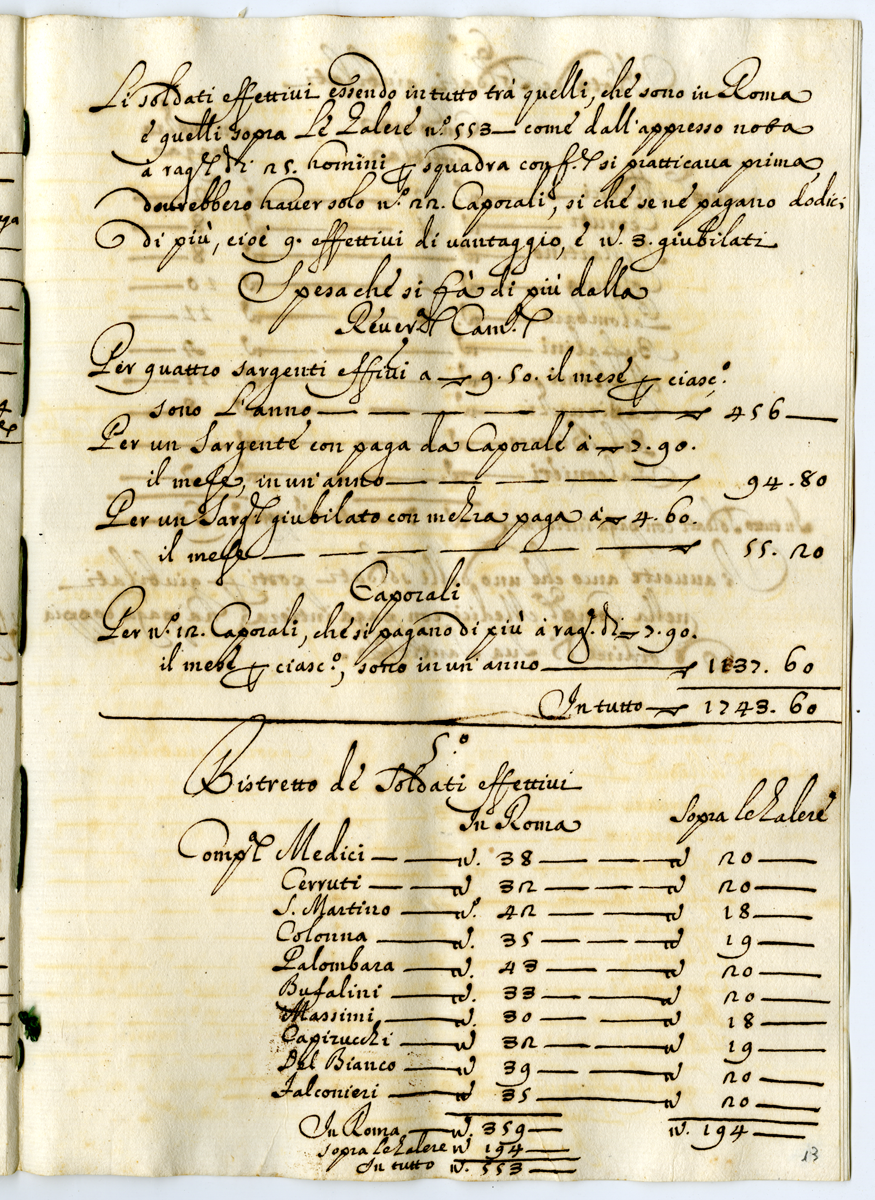 Li soldati effettivi essendo in tutto trà quelli, che sono in Roma
è quelli sopra le Galere n.º 553 — come dall'appresso nota
a rag.ne di 25. homini per squadra conf.e si pratticava prima
dovrebbero haver solo n.º 22. Caporali, si che se ne pagano dodici
di più, cioè 9. effettivi di vantaggio, è n. 3. giubilati
Spesa che si fà di più dalla
Rever.da Cam.ra
Per quattro sargenti effivi a 9.50. il mese per ciasc.º
sono l'anno — — — — — 456 —
Per un Sargente con paga da Caporale à 7.90.
il mese, in un'anno — — — — — 94.80
Per un Sarg.te giubilato con mezza paga à 4.60.
il mese — — — — — 55.20
Caporali
Per n.º 12. Caporali, che si pagano di più à rag.ne di 7.90.
il mese per ciasc.º, sono in un'anno — 1137.60
In tutto 1743.60
5.º
Ristretto de Soldati effettivi
In Roma sopra le Galere
Comp.a Medici — n. 38 — n 20 —
Cerruti — n 32 — n 20 —
S. Martino — n.º 42 — n 18 —
Colonna — n. 35 — n 19 —
Palombara — n. 43 — n 20 —
Bufalini — n. 33 — n 20 —
Massimi — n. 30 — n 18 —
Capizucchi — n 32 — n 19 —
Del Bianco — n 39 — n 20 —
Falconieri — n 35 — n 20 —
In Roma — n. 359 — n. 194 —
sopra le Galere n 194 —
In tutto n. 553 —
13